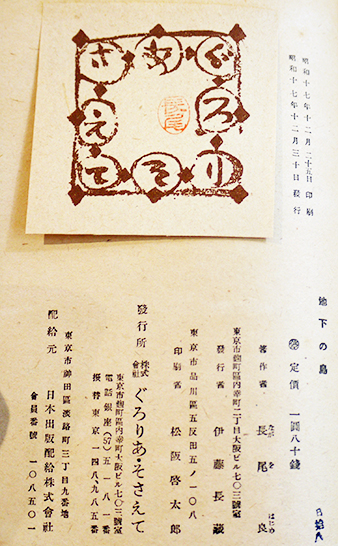 昭和十七年十二月二十五日 印刷
昭和十七年十二月三十日 發行
ぐろりあそさえて
長尾
地下の島
定價 一圓八十錢
著作者 長尾良
ながを はじめ
東京市麴町區內幸町二丁目大阪ビル七〇三號室
發行者 伊藤長藏
東京市品川區五反田五ノ一〇八
印刷者 松阪啓太郎
發行所 株式會社 ぐろりあ・そさえて
東京市麴町區內幸町大阪ビル七〇三號室
電話銀座(57)五一八一番
振替東京一四八九八五番
東京市神田區淡路町二丁目九番地
配給元 日本出版配給株式會社
會員番號 一〇八五〇一